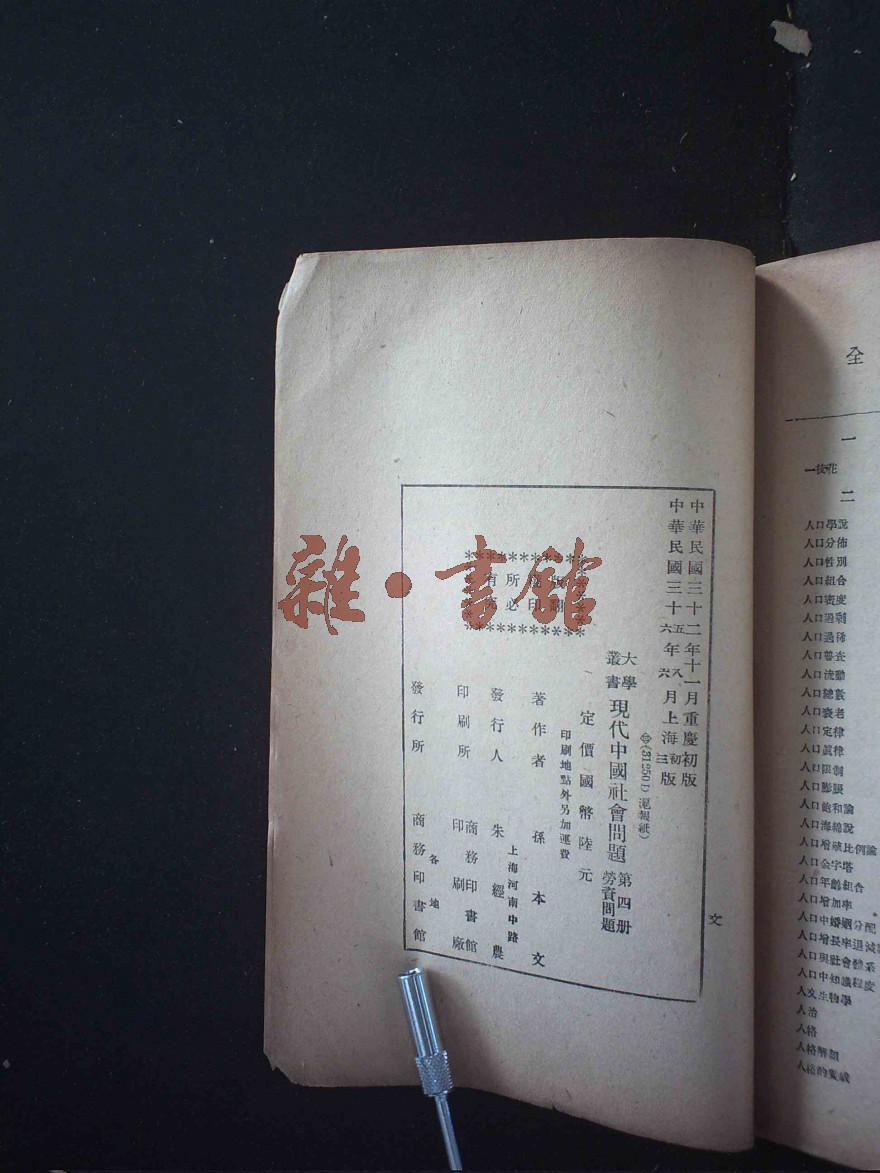 雜·書館
中華民國三十二年十一月重慶初版
中華民國三十五年八月上海初版
六 六 三
(31250 滬報紙)
大學叢書 現代中國社會問題 第四册 勞資問題
定價國幣陸元
印刷地點外另加運費
著作者 孫本文
上海河南中路
發行人 朱經農
印刷所 商務印書館印刷廠
發行所 各地 商務印書館
版權所有
翻印必究
文
全
一
一枝花
二
人口學說
人口分佈
人口性別
人口組合
人口密度
人口過剩
人口過稀
人口普查
人口流動
人口總數
人口衰老
人口定律
人口眞律
人口限制
人口膨脹
人口飽和論
人口海綿說
人口增殖比例論
人口金字塔
人口年齡組合
人口增加率
人口中婚姻分配
人口增長率退減
人口與社會體系
人口中知識程度
人文生物學
人治
人格
人格解組
人格的變成